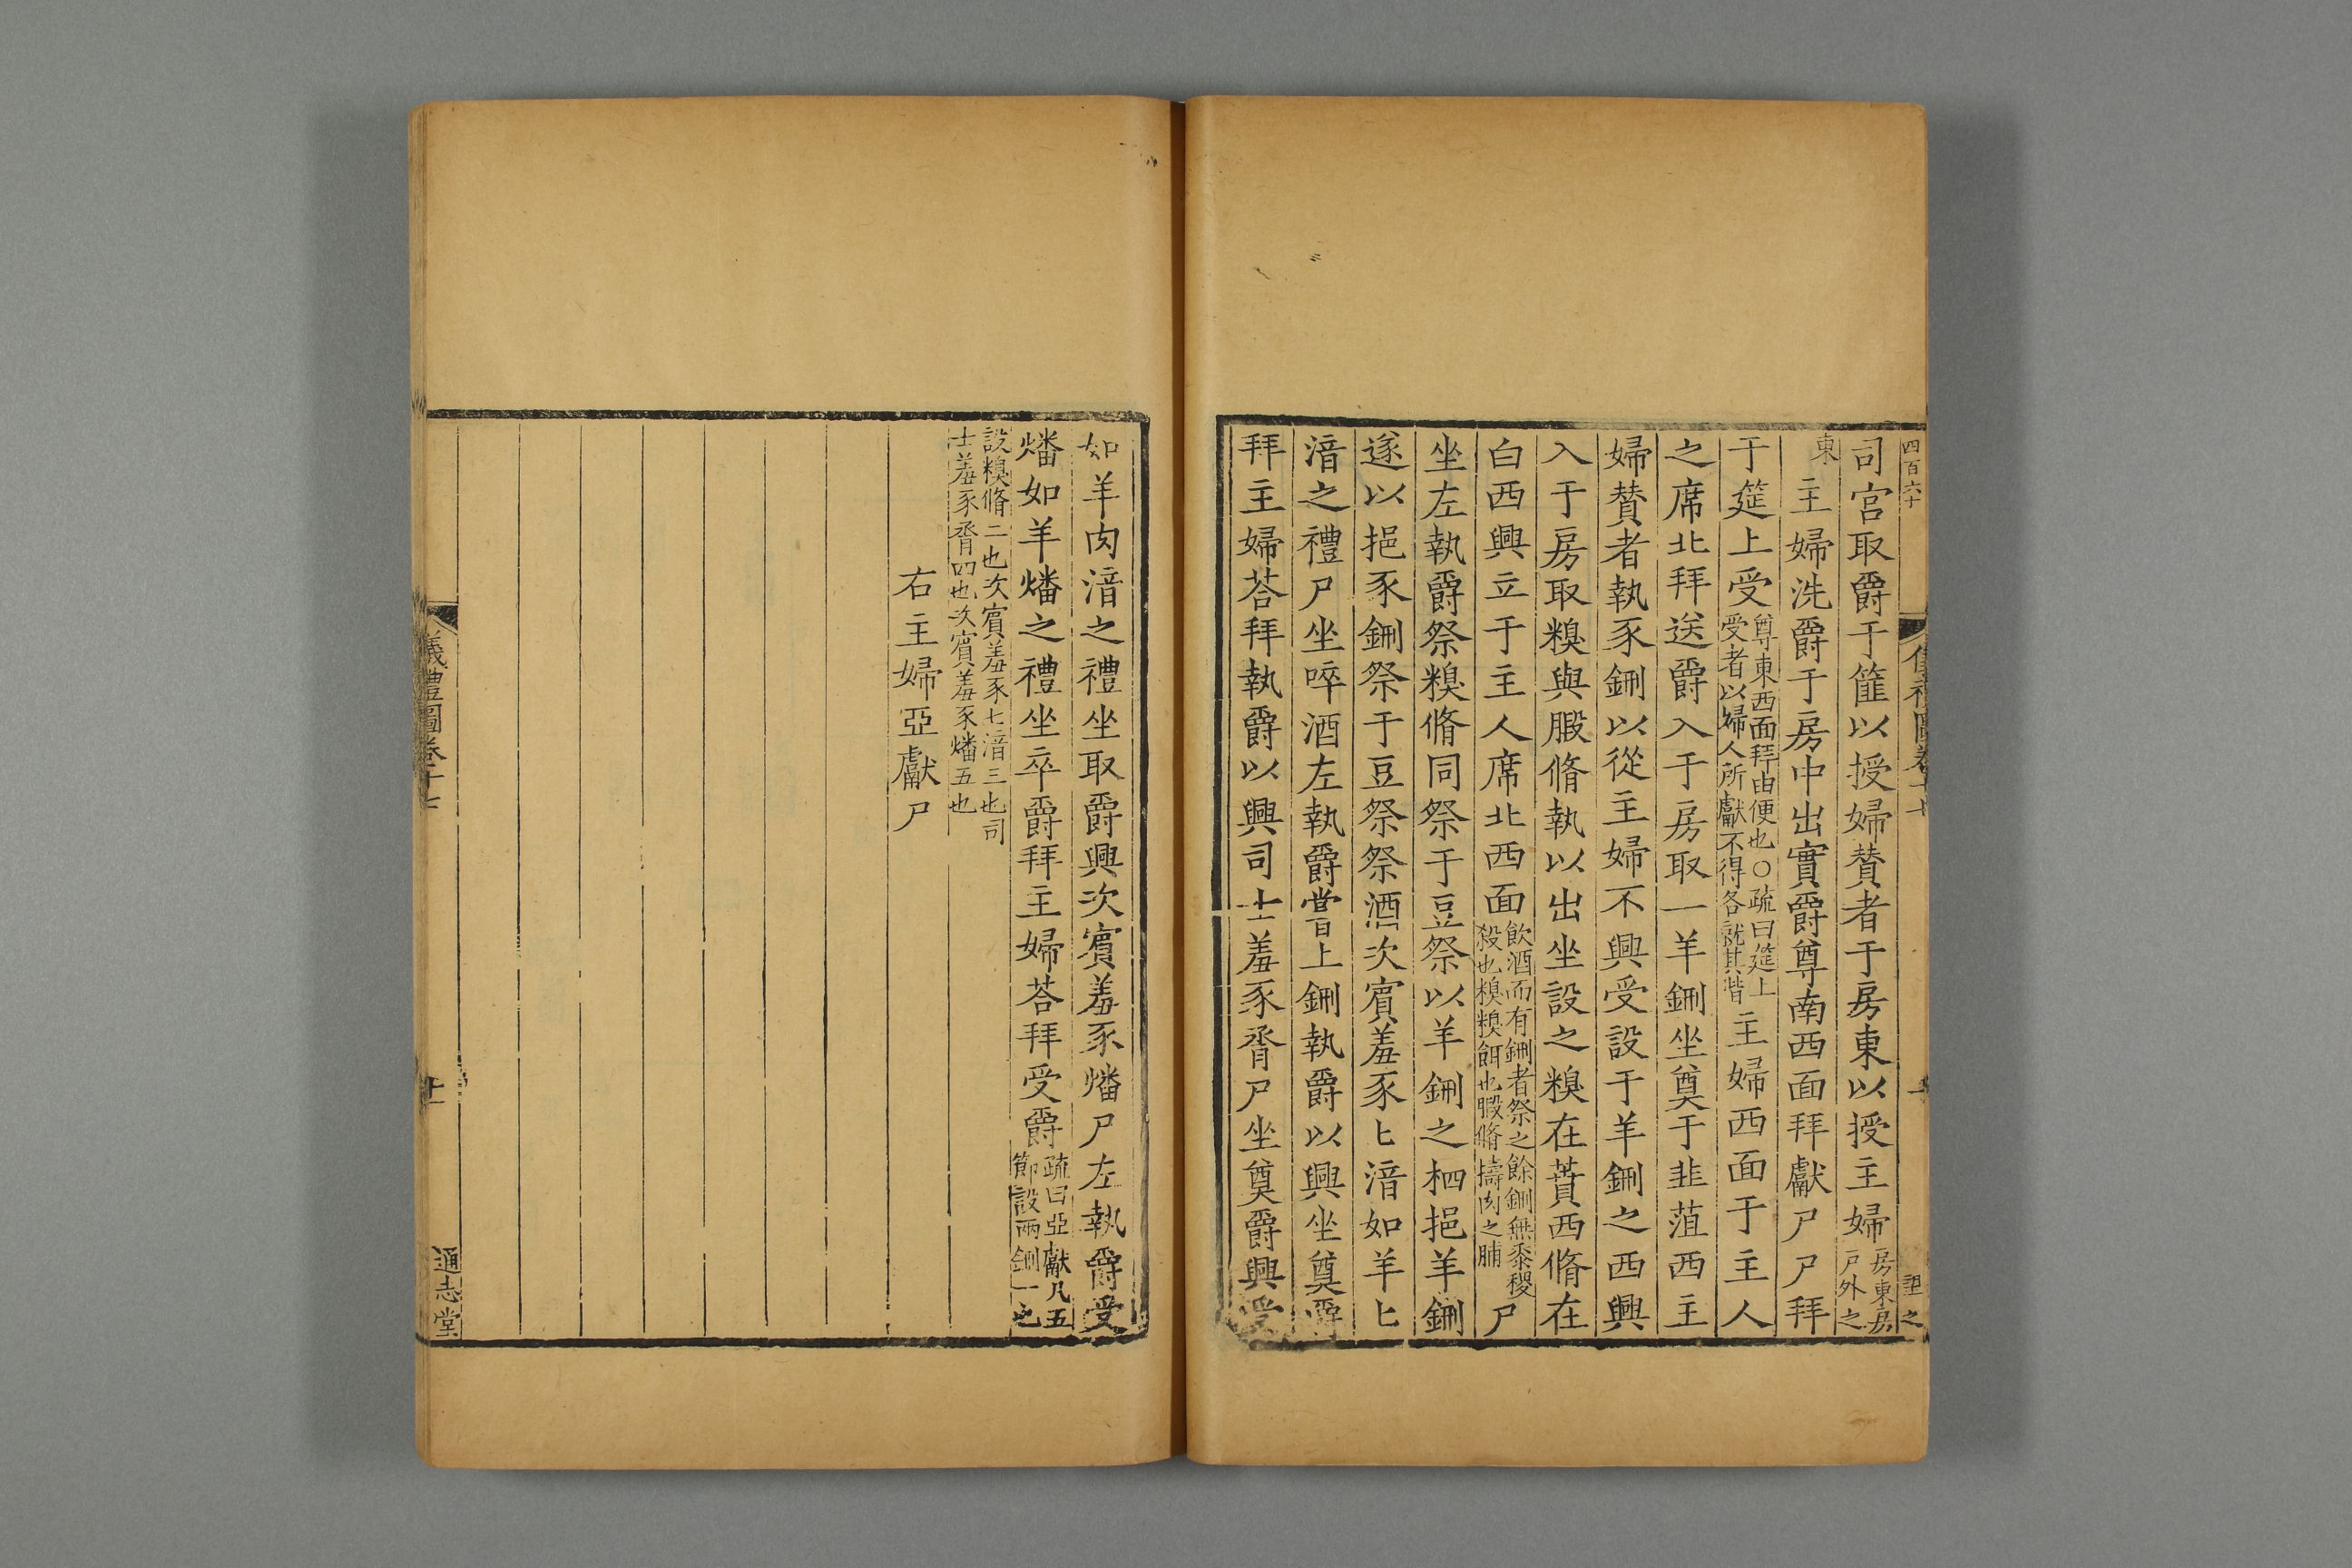 四百六十
儀禮圖卷十七
司宮取爵于篚以授婦贊者于房東以授主婦房東房戶外之
東主婦洗爵于房中出實爵尊南西面拜獻尸尸拜
于筵上受尊東西面拜由便也○疏曰筵上受者以婦人所獻不得各就其階主婦西面于主人
之席北拜送爵入于房取一羊鉶坐奠于韭菹西主
婦贊者執豕鉶以從主婦不興受設于羊鉶之西興
入于房取糗與腶脩執以出坐設之糗在蕡西脩在
白西興立于主人席北西面飲酒而有鉶者祭之餘鉶無黍稷殺也糗糗餌也腶脩擣肉之脯尸
坐左執爵祭糗脩同祭于豆祭以羊鉶之柶挹羊鉶
遂以挹豕鉶祭于豆祭祭酒次賓羞豕匕湇如羊匕
湇之禮尸坐啐酒左執爵甞上鉶執爵以興坐奠爵
拜主婦荅拜執爵以興司士羞豕脀尸坐奠爵興受
如羊肉湇之禮坐取爵興次賓羞豕燔尸左執爵受
燔如羊燔之禮坐卒爵拜主婦荅拜受爵疏曰亞獻凡五節設兩鉶一也
設糗脩二也次賓羞豕匕湇三也司士羞豕脀四也次賓羞豕燔五也
右主婦亞獻尸
儀禮圖卷十七
通志堂